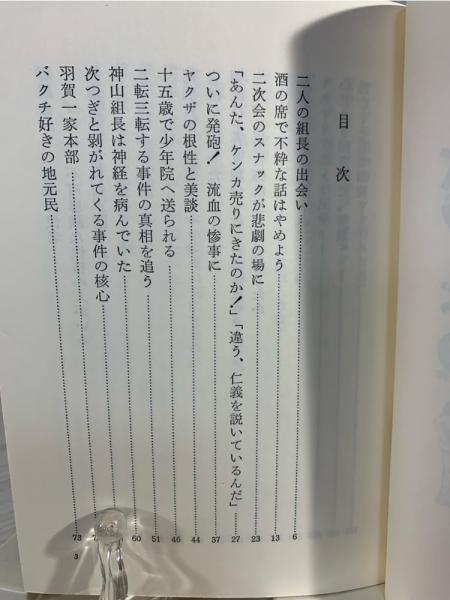 目次
二人の組長の出会い……6
酒の席で不粋な話はやめよう……13
二次会のスナックが悲劇の場に……23
「あんた、ケンカ売りにきたのか！」「違う、仁義を説いているんだ」……27
ついに発砲！　流血の惨事に……37
ヤクザの根性と美談……44
十五歳で少年院へ送られる……46
二転三転する事件の真相を追う……51
神山組長は神経を病んでいた……60
次つぎと剥がれてくる事件の核心……
羽賀一家本部……
バクチ好きの地元民……73
3